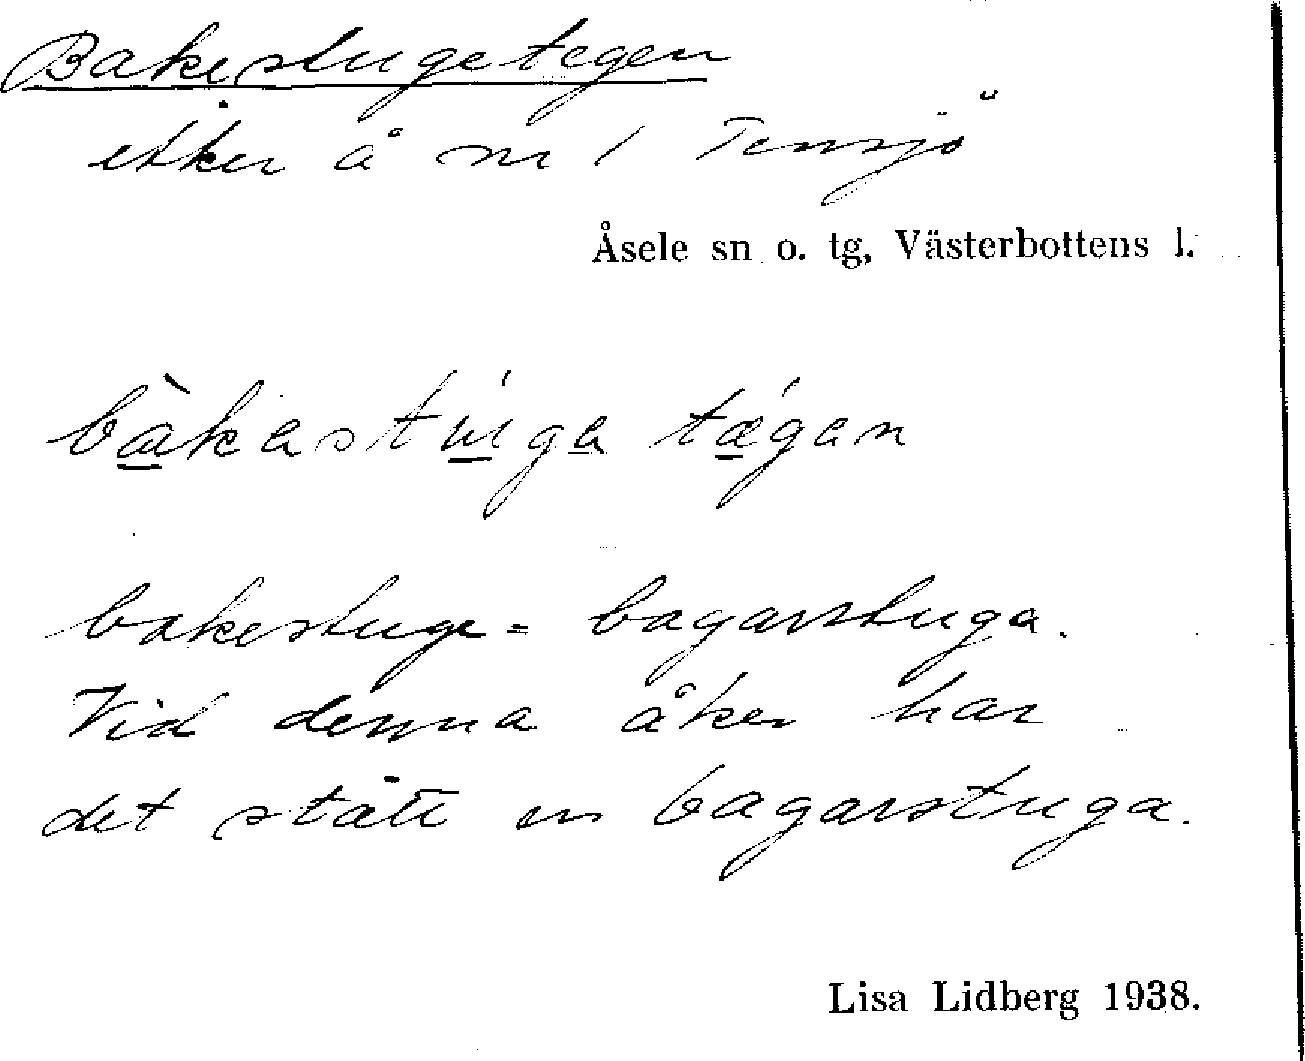 Bakestugetegen
åker å nr 1 Tensjö
Åsele sn o. tg, Västerbottens l.
bàkastuga tǽgan
bakestuge = bagarstuga.
Vid denna åker har
det stått en bagarstuga.
Lisa Lidberg 1938.